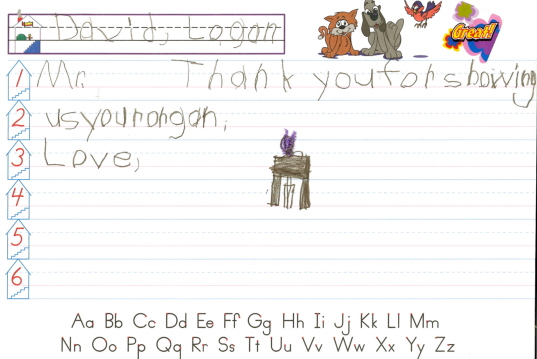 David, Logan
Great!
1 Mr. Thank you for showing
2 us your ongan,
3 Love,
4
5
6
Aa Bb Cc Dd Ee Ff Gg Hh Ii Jj Kk Ll Mm
Nn Oo Pp Qq Rr Ss Tt Uu Vv Ww Xx Yy Zz